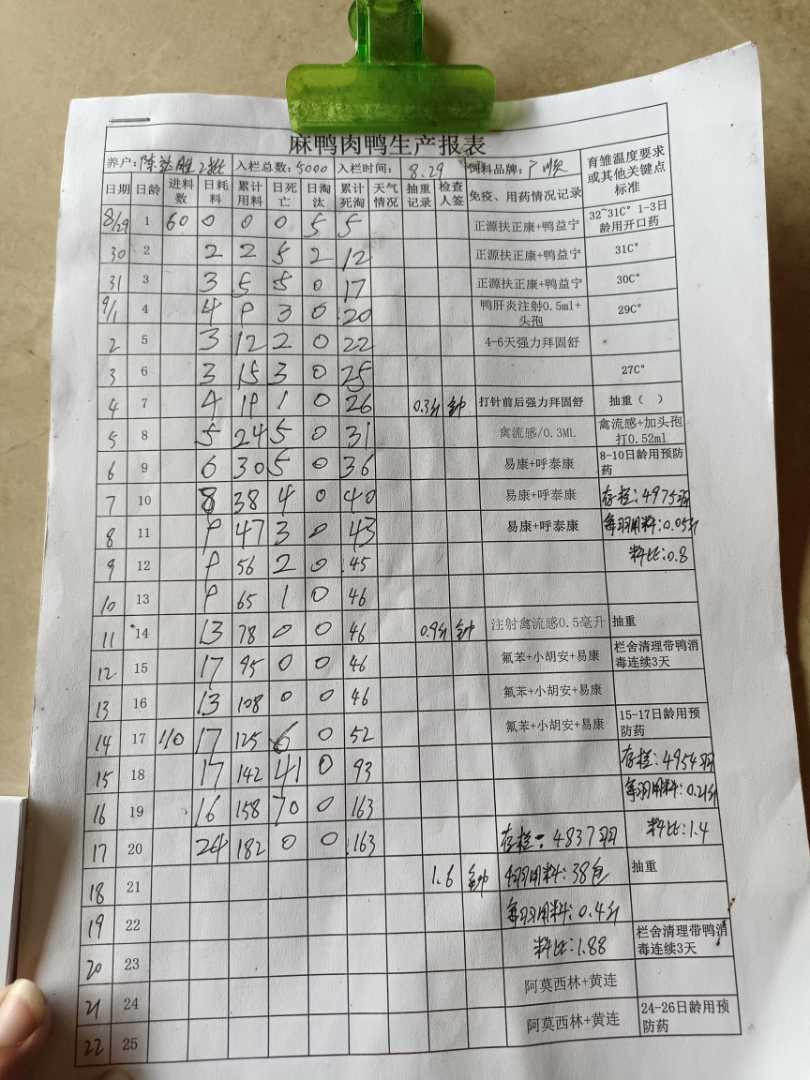 麻鸭肉鸭生产报表
养户: 陈 胜 2批 入栏总数: 5000 入栏时间: 8.29 饲料品牌: 广顺 育雏温度要求或其他关键点标准
日期 日龄 进料数 日耗料 累计用料 日死亡 日淘汰 累计死淘 天气情况 抽重记录 检查人签 免疫、用药情况记录
8/29 1 60 0 0 0 5 5 正源扶正康+鸭益宁 32~31C° 1-3日龄用开口药
30 2 2 2 5 2 12 正源扶正康+鸭益宁 31C°
31 3 3 5 5 0 17 正源扶正康+鸭益宁 30C°
9/1 4 4 9 3 0 20 鸭肝炎注射0.5ml+头孢 29C°
2 5 3 12 2 0 22 4-6天强力拜固舒
3 6 3 15 3 0 25 27C°
4 7 4 19 1 0 26 0.3斤 钟 打针前后强力拜固舒 抽重（ ）
5 8 5 24 5 0 31 禽流感/0.3ML 禽流感+加头孢打0.52ml
6 9 6 30 5 0 36 易康+呼泰康 8-10日龄用预防药
7 10 8 38 4 0 40 易康+呼泰康 存栏: 4975羽
8 11 9 47 3 0 43 易康+呼泰康 每羽用料: 0.05斤
9 12 9 56 2 0 45 料比: 0.8
10 13 9 65 1 0 46
11 14 13 78 0 0 46 0.9斤 钟 注射禽流感0.5毫升 抽重
12 15 17 95 0 0 46 氟苯+小胡安+易康 栏舍清理带鸭消毒连续3天
13 16 13 108 0 0 46 氟苯+小胡安+易康
14 17 110 17 125 6 0 52 氟苯+小胡安+易康 15-17日龄用预防药
15 18 17 142 41 0 93 存栏: 4954羽
16 19 16 158 70 0 163 每羽用料: 0.21斤
17 20 24 182 0 0 163 存栏: 4837羽 料比: 1.4
18 21 1.6 钟 用料: 38包 抽重
19 22 每羽用料: 0.4斤
20 23 料比: 1.88 栏舍清理带鸭消毒连续3天
21 24 阿莫西林+黄连
22 25 阿莫西林+黄连 24-26日龄用预防药